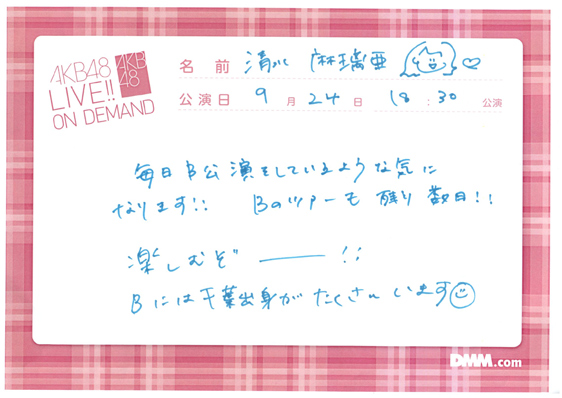 AKB48
LIVE!!
ON DEMAND
AKB
48
名 前 清水 麻璃亜
公演日 9 月 24 日 18 : 30 公演
毎日B公演をしているような気に
なります!! Bのツアーも残り数日!!
楽しむぞ ――!!
Bには千葉出身がたくさんいます
DMM.com